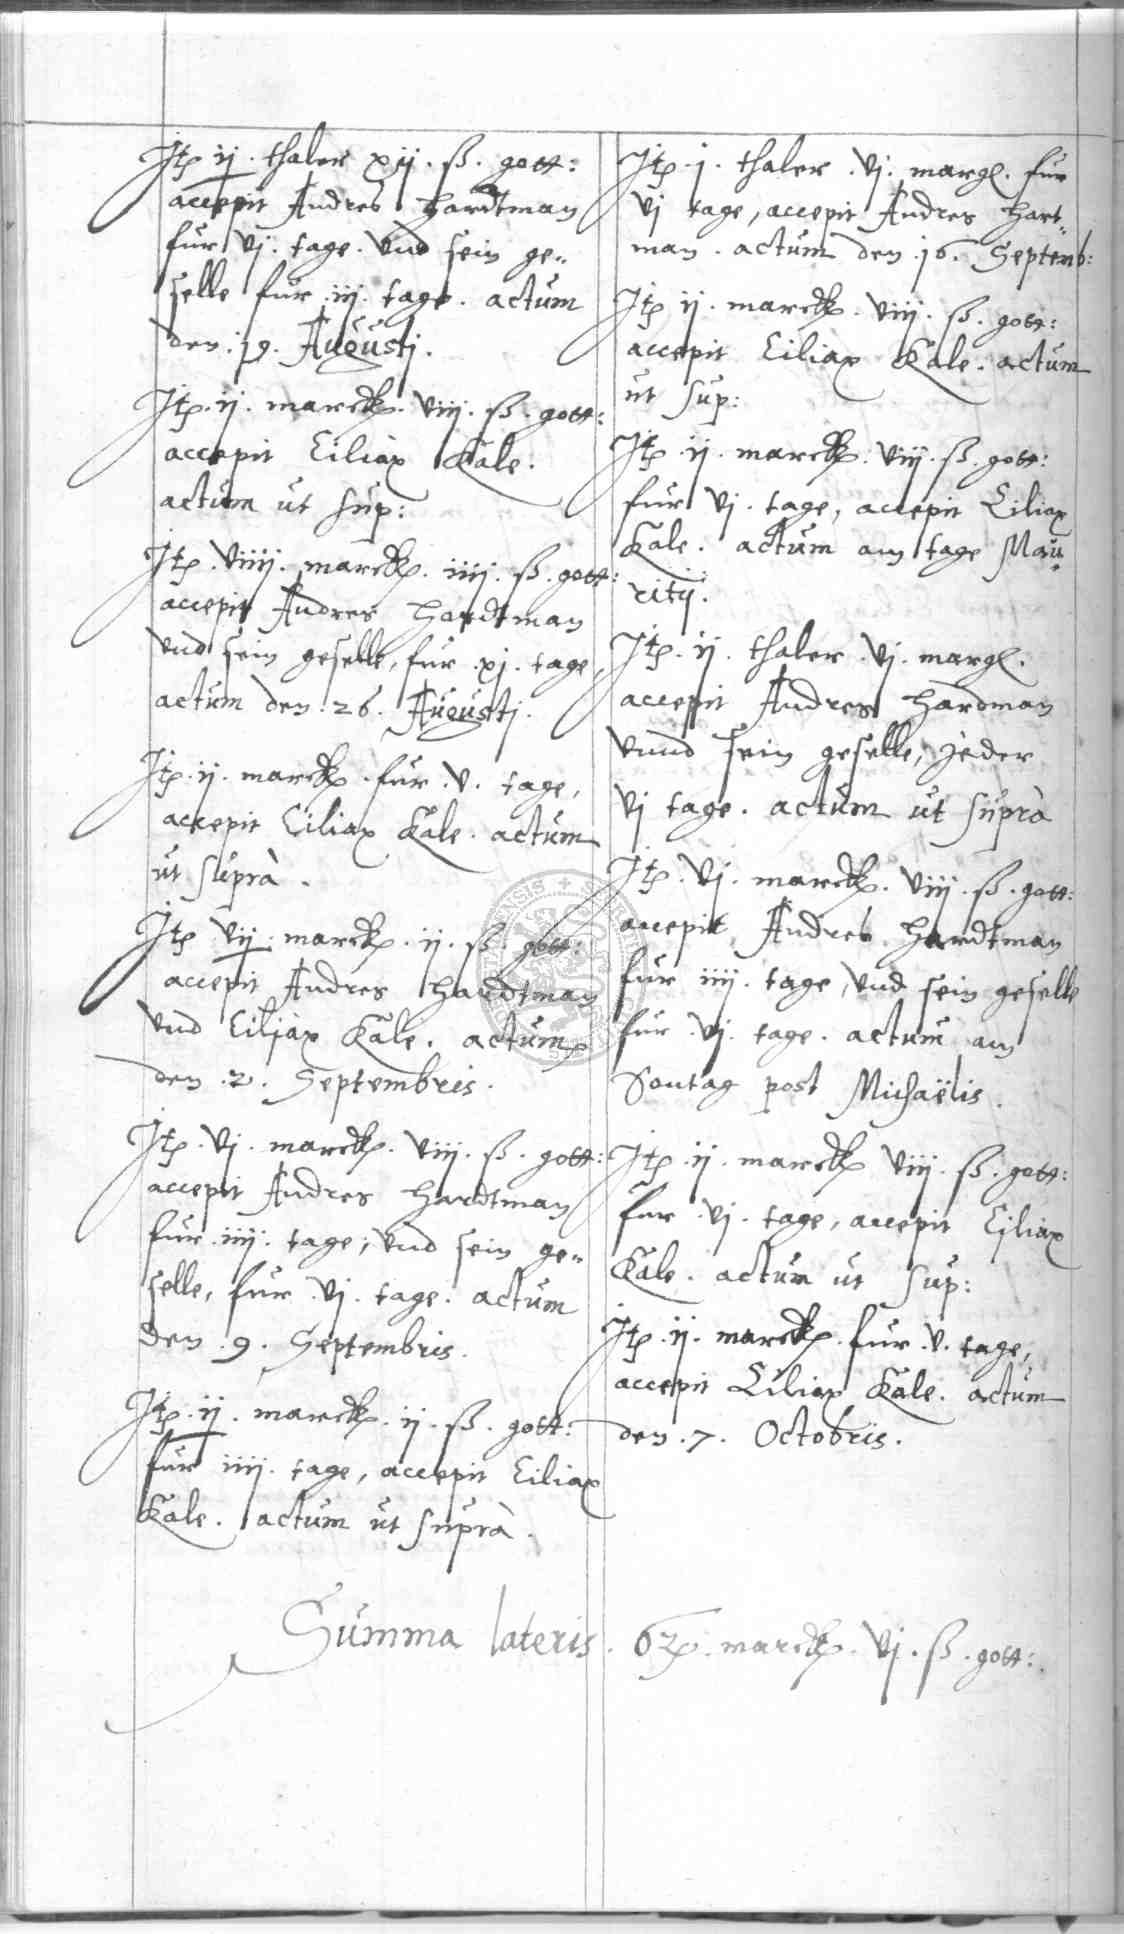 Itē. ij. thaler xij. ß. gott:
accepit Andres Hardtman
fur vj. tage. vnd sein ge„
selle fur iij. tage. actum
den .19. Augustj.
Itē. ij. marckē. viij. ß. gott:
accepit Ciliax Kale.
actum ut sup:
Itē. viiij. marckē. iiij. ß. gott:
accepit Andres Hardtman
vnd sein geselle, fur xj. tage,
actum den .26. Augustj.
Itē. ij. marckē. fur .v. tage,
accepit Ciliax Kale. actum
ut suprà.
Itē vij. marckē. ij. ß. gott:
accepit Andres Hardtman
vnd Ciliax Kale. actum
den .2. Septembris.
Itē. vj. marckē. viij. ß. gott:
accepit Andres Hardtman
fur .iiij. tage, vnd sein ge„
selle, fur .vj. tage. actum
den .9. Septembris.
Itē. ij. marckē. ij. ß. gott:
fur iiij. tage, accepit Ciliax
Kale. actum ut suprà.
Itē. j. thaler .vj. margē. fur
vj tage, accepit Andres Hart„
man. actum den .16. Septemb:
Itē ij. marckē. viij. ß. gott:
accepit Ciliax Kale. actum
ut sup:
Itē .ij. marckē. viij. ß. gott:
fur vj. tage, accepit Ciliax
Kale. actum am tage Mau„
ritij.
Itē. ij. thaler .vj. margē.
accepit Andres Hardman
vnnd sein geselle, jeder
vj tage. actum ut suprà
Itē. vj. marckē. viij. ß. gott:
accepit Andres Hardtman
fur iiij. tage, vnd sein geselle
fur .vj. tage. actum am
Sontag post Michaëlis.
Itē. ij. marckē viij. ß. gott:
fur .vj. tage, accepit Ciliax
Kale. actum ut sup:
Itē. ij. marckē. fur .v. tage,
accepit Ciliax Kale. actum
den .7. Octobris.
Summa lateris. marckē. vj. ß. gott: